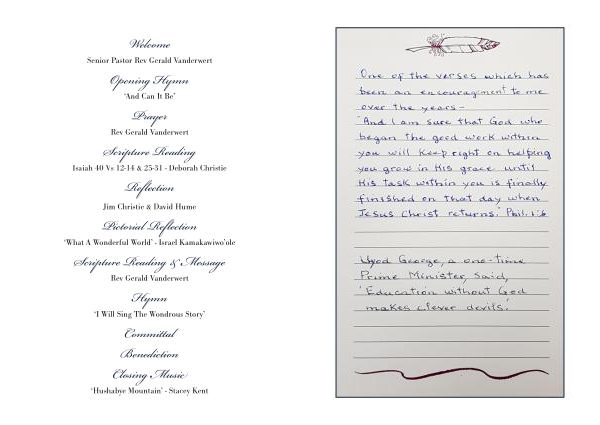 Welcome
Senior Pastor Rev Gerald Vanderwert
Opening Hymn
'And Can It Be'
Prayer
Rev Gerald Vanderwert
Scripture Reading
Isaiah 40 Vs 12-14 & 25-31 - Deborah Christie
Reflection
Jim Christie & David Hume
Pictorial Reflection
'What A Wonderful World' - Israel Kamakawiwo'ole
Scripture Reading & Message
Rev Gerald Vanderwert
Hymn
'I Will Sing The Wondrous Story'
Committal
Benediction
Closing Music
'Hushabye Mountain' - Stacey Kent
One of the verses which has
been an encouragement to me
over the years -
'And I am sure that God who
began the good work within
you will keep right on helping
you grow in His grace until
His task within you is finally
finished on that day when
Jesus Christ returns.' Phil. 1:6
George, a one-time
Prime Minister, said,
'Education without God
makes clever devils.'